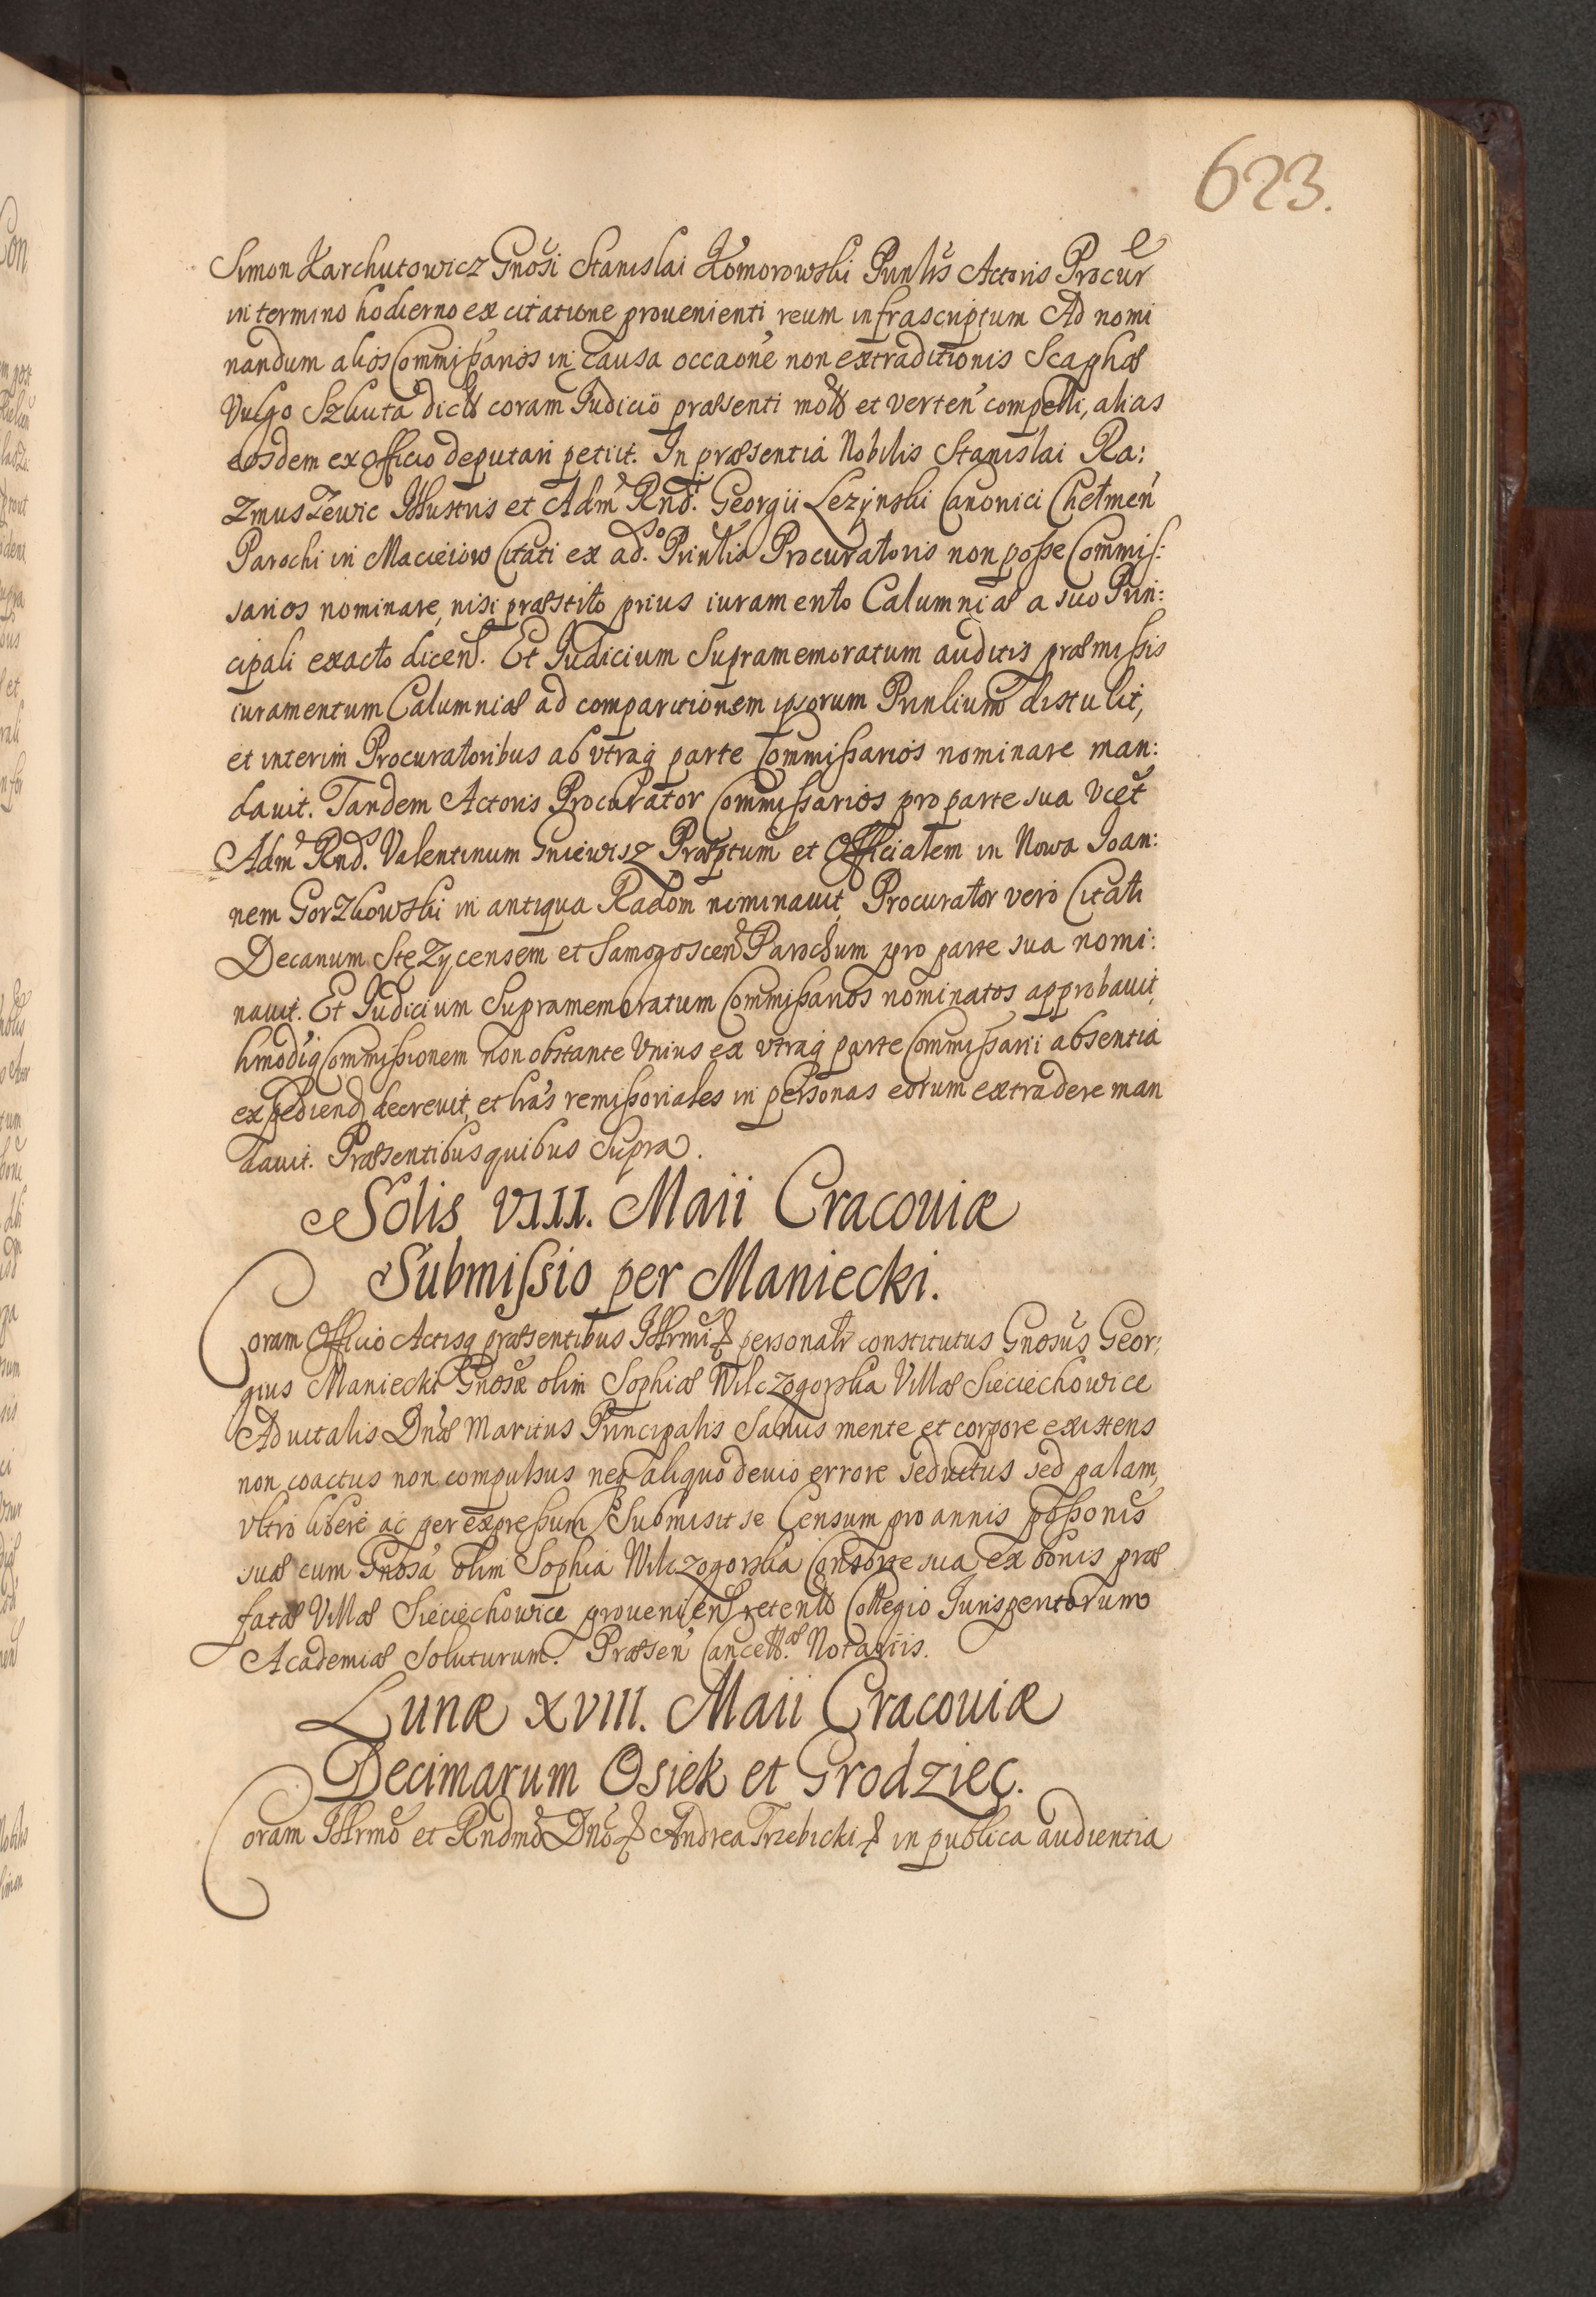 623.
Simon Karchutowicz Gnosi Stanislai Komorowski Prinlis Actoris Procur
in termino hodierno ex citatione prouenienti reum infrascriptum Ad nomi
nandum alios Commissarios in causa occaone non extraditionis Scaphæ
Vulgo Szkuta dictæ coram Judicio præsenti motæ et verten compelli, alias
eosdem ex officio deputari petiit. In præsentia Nobilis Stanislai Ra:
zmuszewic Illustris et Adm Rndi. Georgii Lezynski Canonici Chełmen
Parochi in Macieiow Citati ex ad. Prinlis Procuratoris non posse Commis:
sarios nominare, nisi præstito prius iuramento Calumniæ a suo Prin:
cipali exacto dicen. Et Judicium Supramemoratum auditis præmissis
iuramentum Calumniæ ad comparitionem ipsorum Prinlium distulit,
et interim Procuratoribus ab vtraq parte Commissarios nominare man:
dauit. Tandem Actoris Procurator Commissarios pro parte sua Vcet
Adm Rnd. Valentinum Gniewisz Præptum et Officialem in Nowa Joan:
nem Gorzkowski in antiqua Radom nominauit, Procurator vero Citati
Decanum Stęzycensem et Samogoscen Parochum pro parte sua nomi:
nauit. Et Judicium Supramemoratum Commissarios nominatos approbauit,
hmodiq Commissionem non obstante Vnius ex vtraq parte Commissarii absentia
expediend decreuit, et lras remissoriales in personas eorum extradere man
dauit. Præsentibus quibus Supra.
Solis VIII. Maii Cracouiæ
Submissio per Maniecki.
Coram Officio Actisq præsentibus Illrmi personalr constitutus Gnosus Geor:
gius Maniecki Gnosæ olim Sophiæ Wilczogorska Villæ Sieciechowice
Aduitalis Dnæ Maritus Principalis Sanus mente et corpore existens
non coactus non compulsus neq aliquo deuio errore seductus sed palam,
vltro libere ac per expressum Submisit se Censum pro annis possonis
suæ cum Gnosa olim Sophia Wilczogorska Consorte sua ex bonis præ
fatæ Villæ Sieciechowice prouenien retent Collegio Jurisperitorum
Academiæ Soluturum. Præsen Cancellæ. Notariis.
Lunæ XVIII. Maii Cracouiæ
Decimarum Osiek et Grodziec.
Coram Illrmo et Rndmo Dno Andrea Trzebicki in publica audientia